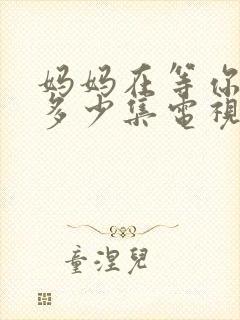 妈妈在等你
多少集電視
童涅兒